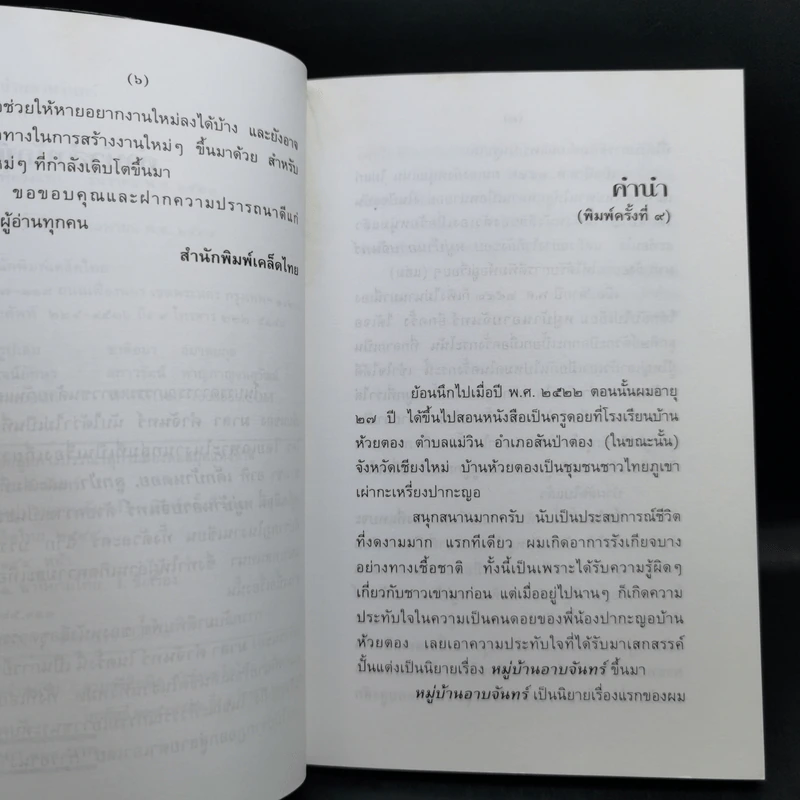 (๖)
ช่วยให้หายอยากงานใหม่ลงได้บ้าง และยังอาจ
ทางในการสร้างงานใหม่ๆ ขึ้นมาด้วย สำหรับ
ใหม่ๆ ที่กำลังเติบโตขึ้นมา
ขอขอบคุณและฝากความปรารถนาดีแก่
ผู้อ่านทุกคน
สำนักพิมพ์เคล็ดไทย
คำนำ
(พิมพ์ครั้งที่ ๙)
ย้อนนึกไปเมื่อปี พ.ศ. ๒๕๒๒ ตอนนั้นผมอายุ
๒๗ ปี ได้ขึ้นไปสอนหนังสือเป็นครูดอยที่โรงเรียนบ้าน
ห้วยตอง ตำบลแม่วิน อำเภอสันป่าตอง (ในขณะนั้น)
จังหวัดเชียงใหม่ บ้านห้วยตองเป็นชุมชนชาวไทยภูเขา
เผ่ากะเหรี่ยงปากะญอ
สนุกสนานมากครับ นับเป็นประสบการณ์ชีวิต
ที่งดงามมาก แรกทีเดียว ผมเกิดอาการรังเกียจบาง
อย่างทางเชื้อชาติ ทั้งนี้เป็นเพราะได้รับความรู้ผิดๆ
เกี่ยวกับชาวเขามาก่อน แต่เมื่ออยู่ไปนานๆ ก็เกิดความ
ประทับใจในความเป็นคนดอยของพี่น้องปากะญอบ้าน
ห้วยตอง เลยเอาความประทับใจที่ได้รับมาเสกสรรค์
ปั้นแต่งเป็นนิยายเรื่อง หมู่บ้านอาบจันทร์ ขึ้นมา
หมู่บ้านอาบจันทร์ เป็นนิยายเรื่องแรกของผม